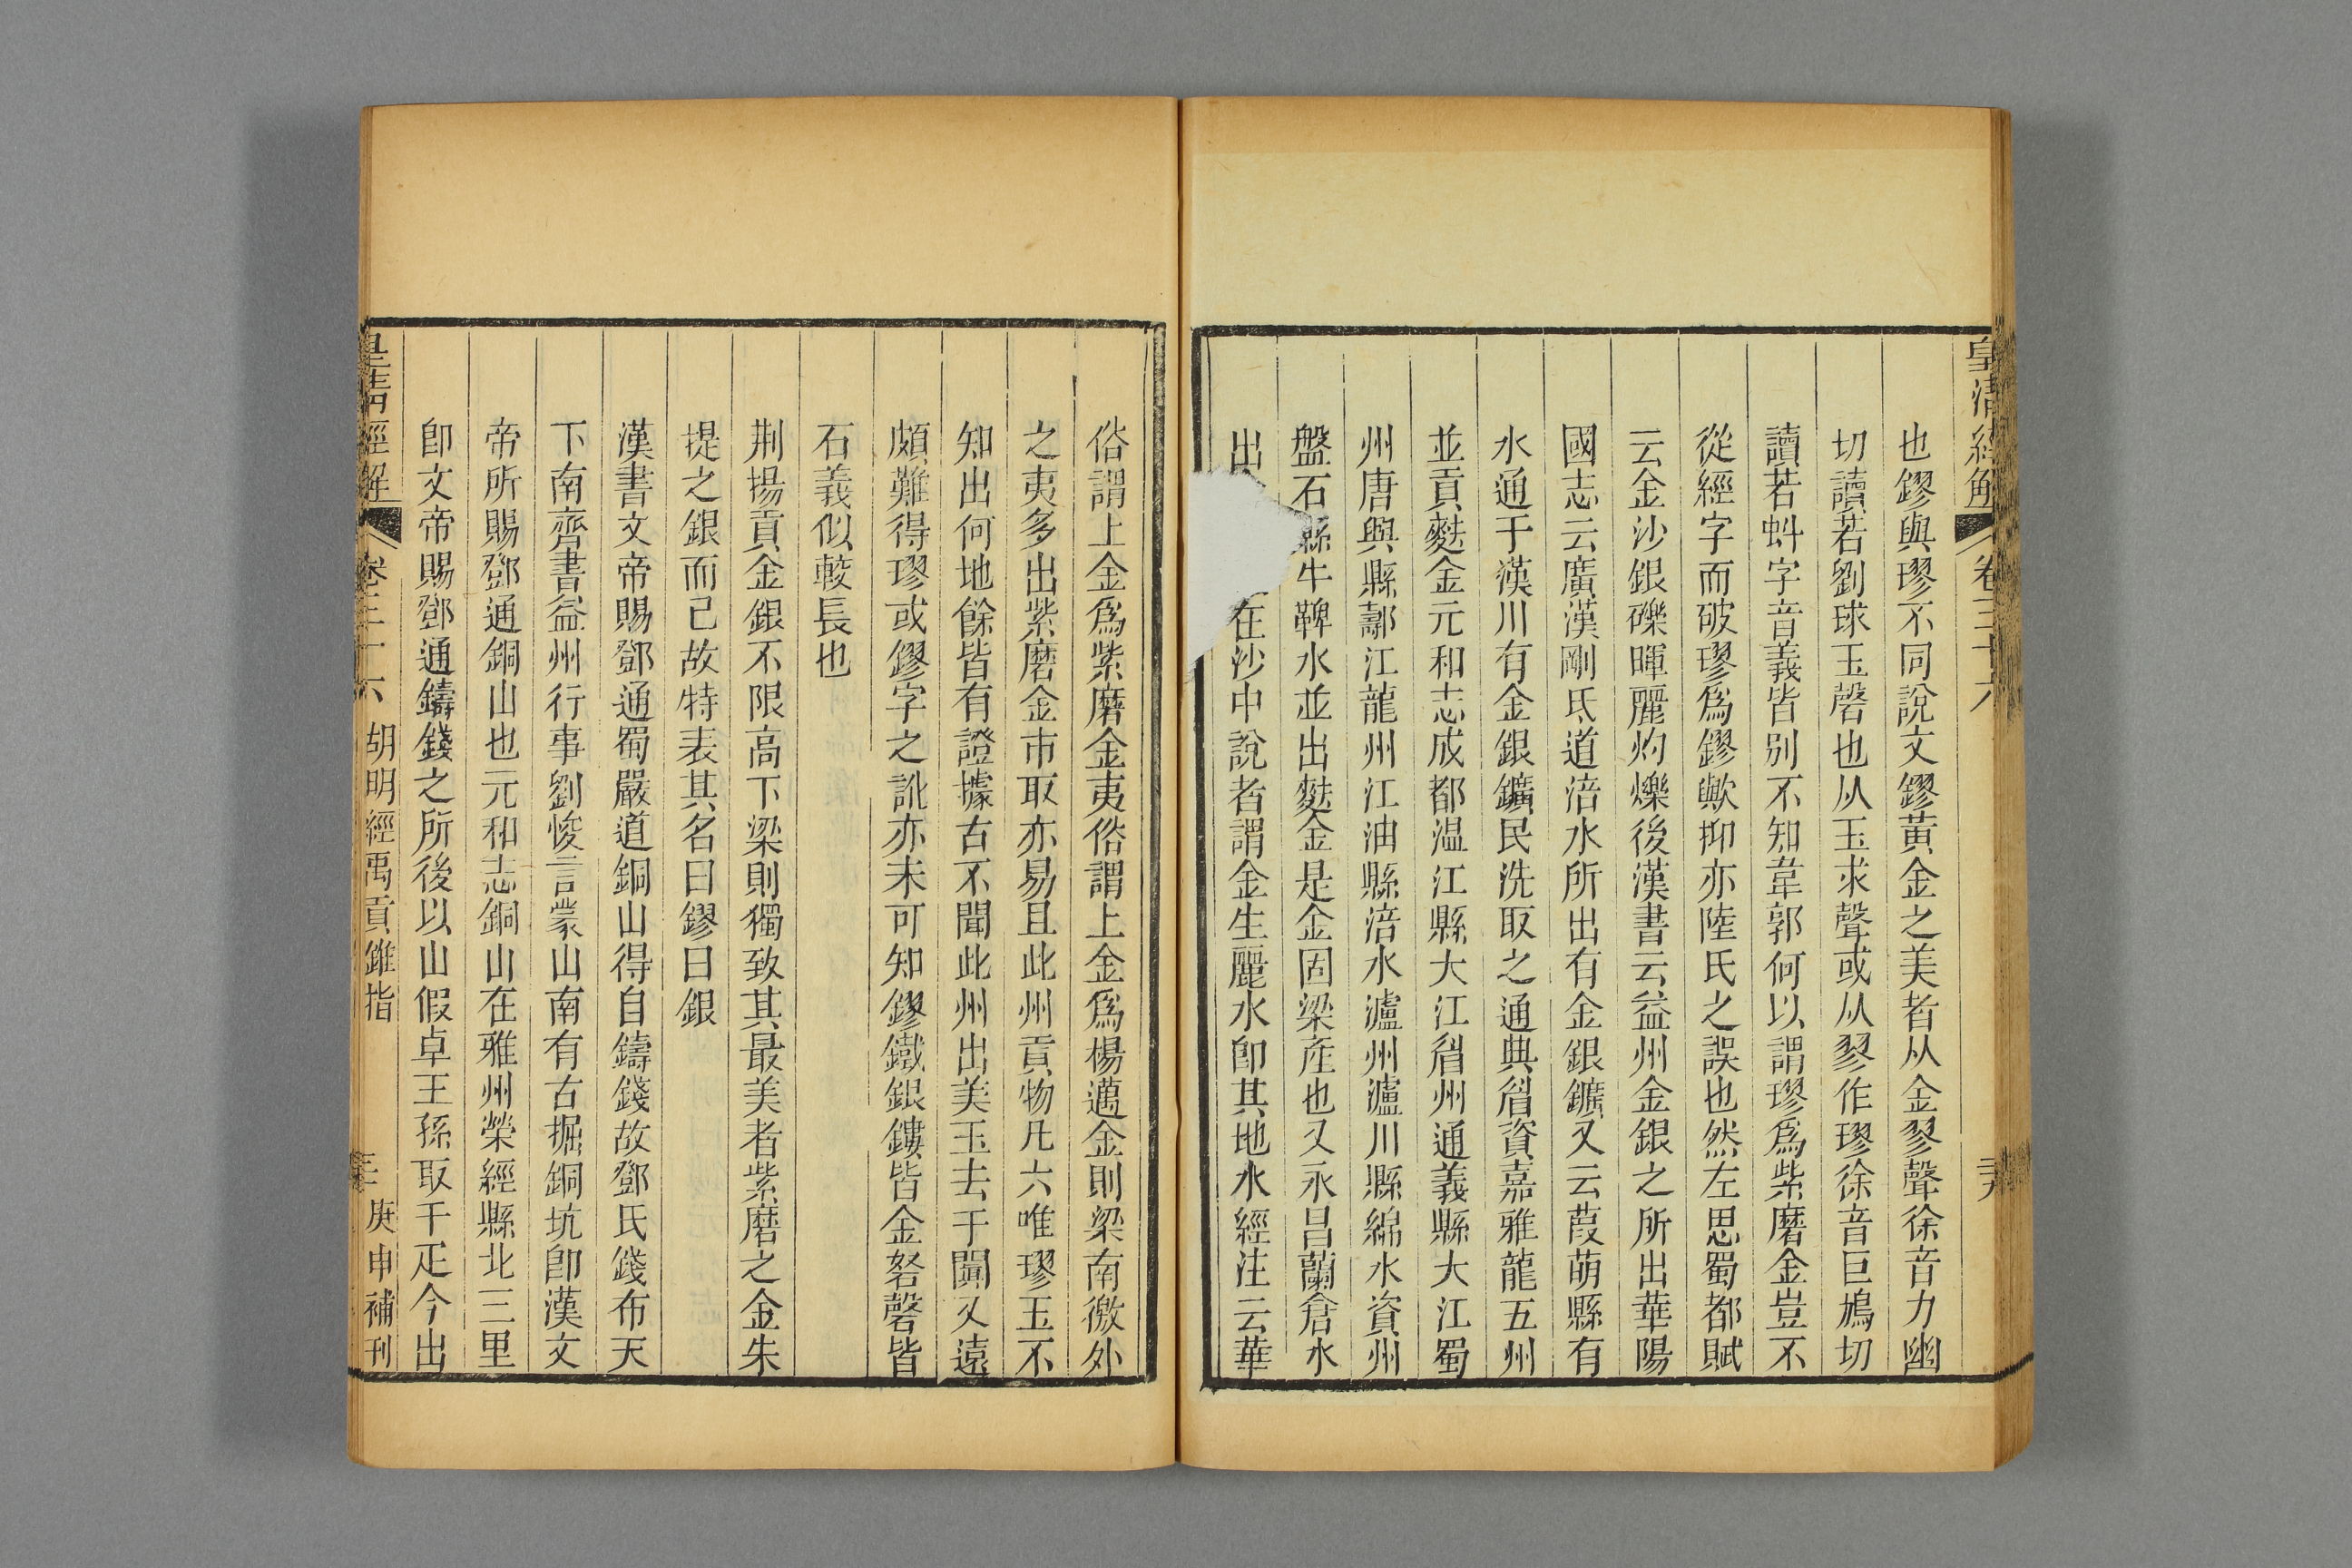 皇清經解 卷三十六 三九
也鏐與璆不同說文鏐黃金之美者从金翏聲徐音力幽
切讀若劉球玉磬也从玉求聲或从翏作璆徐音巨鳩切
讀若蚪字音義皆別不知韋郭何以謂璆爲紫磨金豈不
從經字而破璆爲鏐歟抑亦陸氏之誤也然左思蜀都賦
云金沙銀礫暉麗灼爍後漢書云益州金銀之所出華陽
國志云廣漢剛氐道涪水所出有金銀鑛又云葭萌縣有
水通于漢川有金銀鑛民洗取之通典眉資嘉雅龍五州
並貢麩金元和志成都溫江縣大江眉州通義縣大江蜀
州唐興縣鄯江龍州江油縣涪水瀘州瀘川縣綿水資州
盤石縣牛鞞水並出麩金是金固梁産也又永昌蘭倉水
出在沙中說者謂金生麗水卽其地水經注云華
俗謂上金爲紫磨金夷俗謂上金爲楊邁金則梁南徼外
之夷多出紫磨金市取亦易且此州貢物凡六唯璆玉不
知出何地餘皆有證據古不聞此州出美玉去于闐又遠
頗難得璆或鏐字之訛亦未可知鏐鐵銀鏤皆金砮磬皆
石義似較長也
荆揚貢金銀不限高下梁則獨致其最美者紫磨之金朱
提之銀而已故特表其名曰鏐曰銀
漢書文帝賜鄧通蜀嚴道銅山得自鑄錢故鄧氏錢布天
下南齊書益州行事劉悛言蒙山南有古掘銅坑卽漢文
帝所賜鄧通銅山也元和志銅山在雅州榮經縣北三里
卽文帝賜鄧通鑄錢之所後以山假卓王孫取千疋今出
皇清經解 卷三十六 胡明經禹貢錐指 庚申補刊